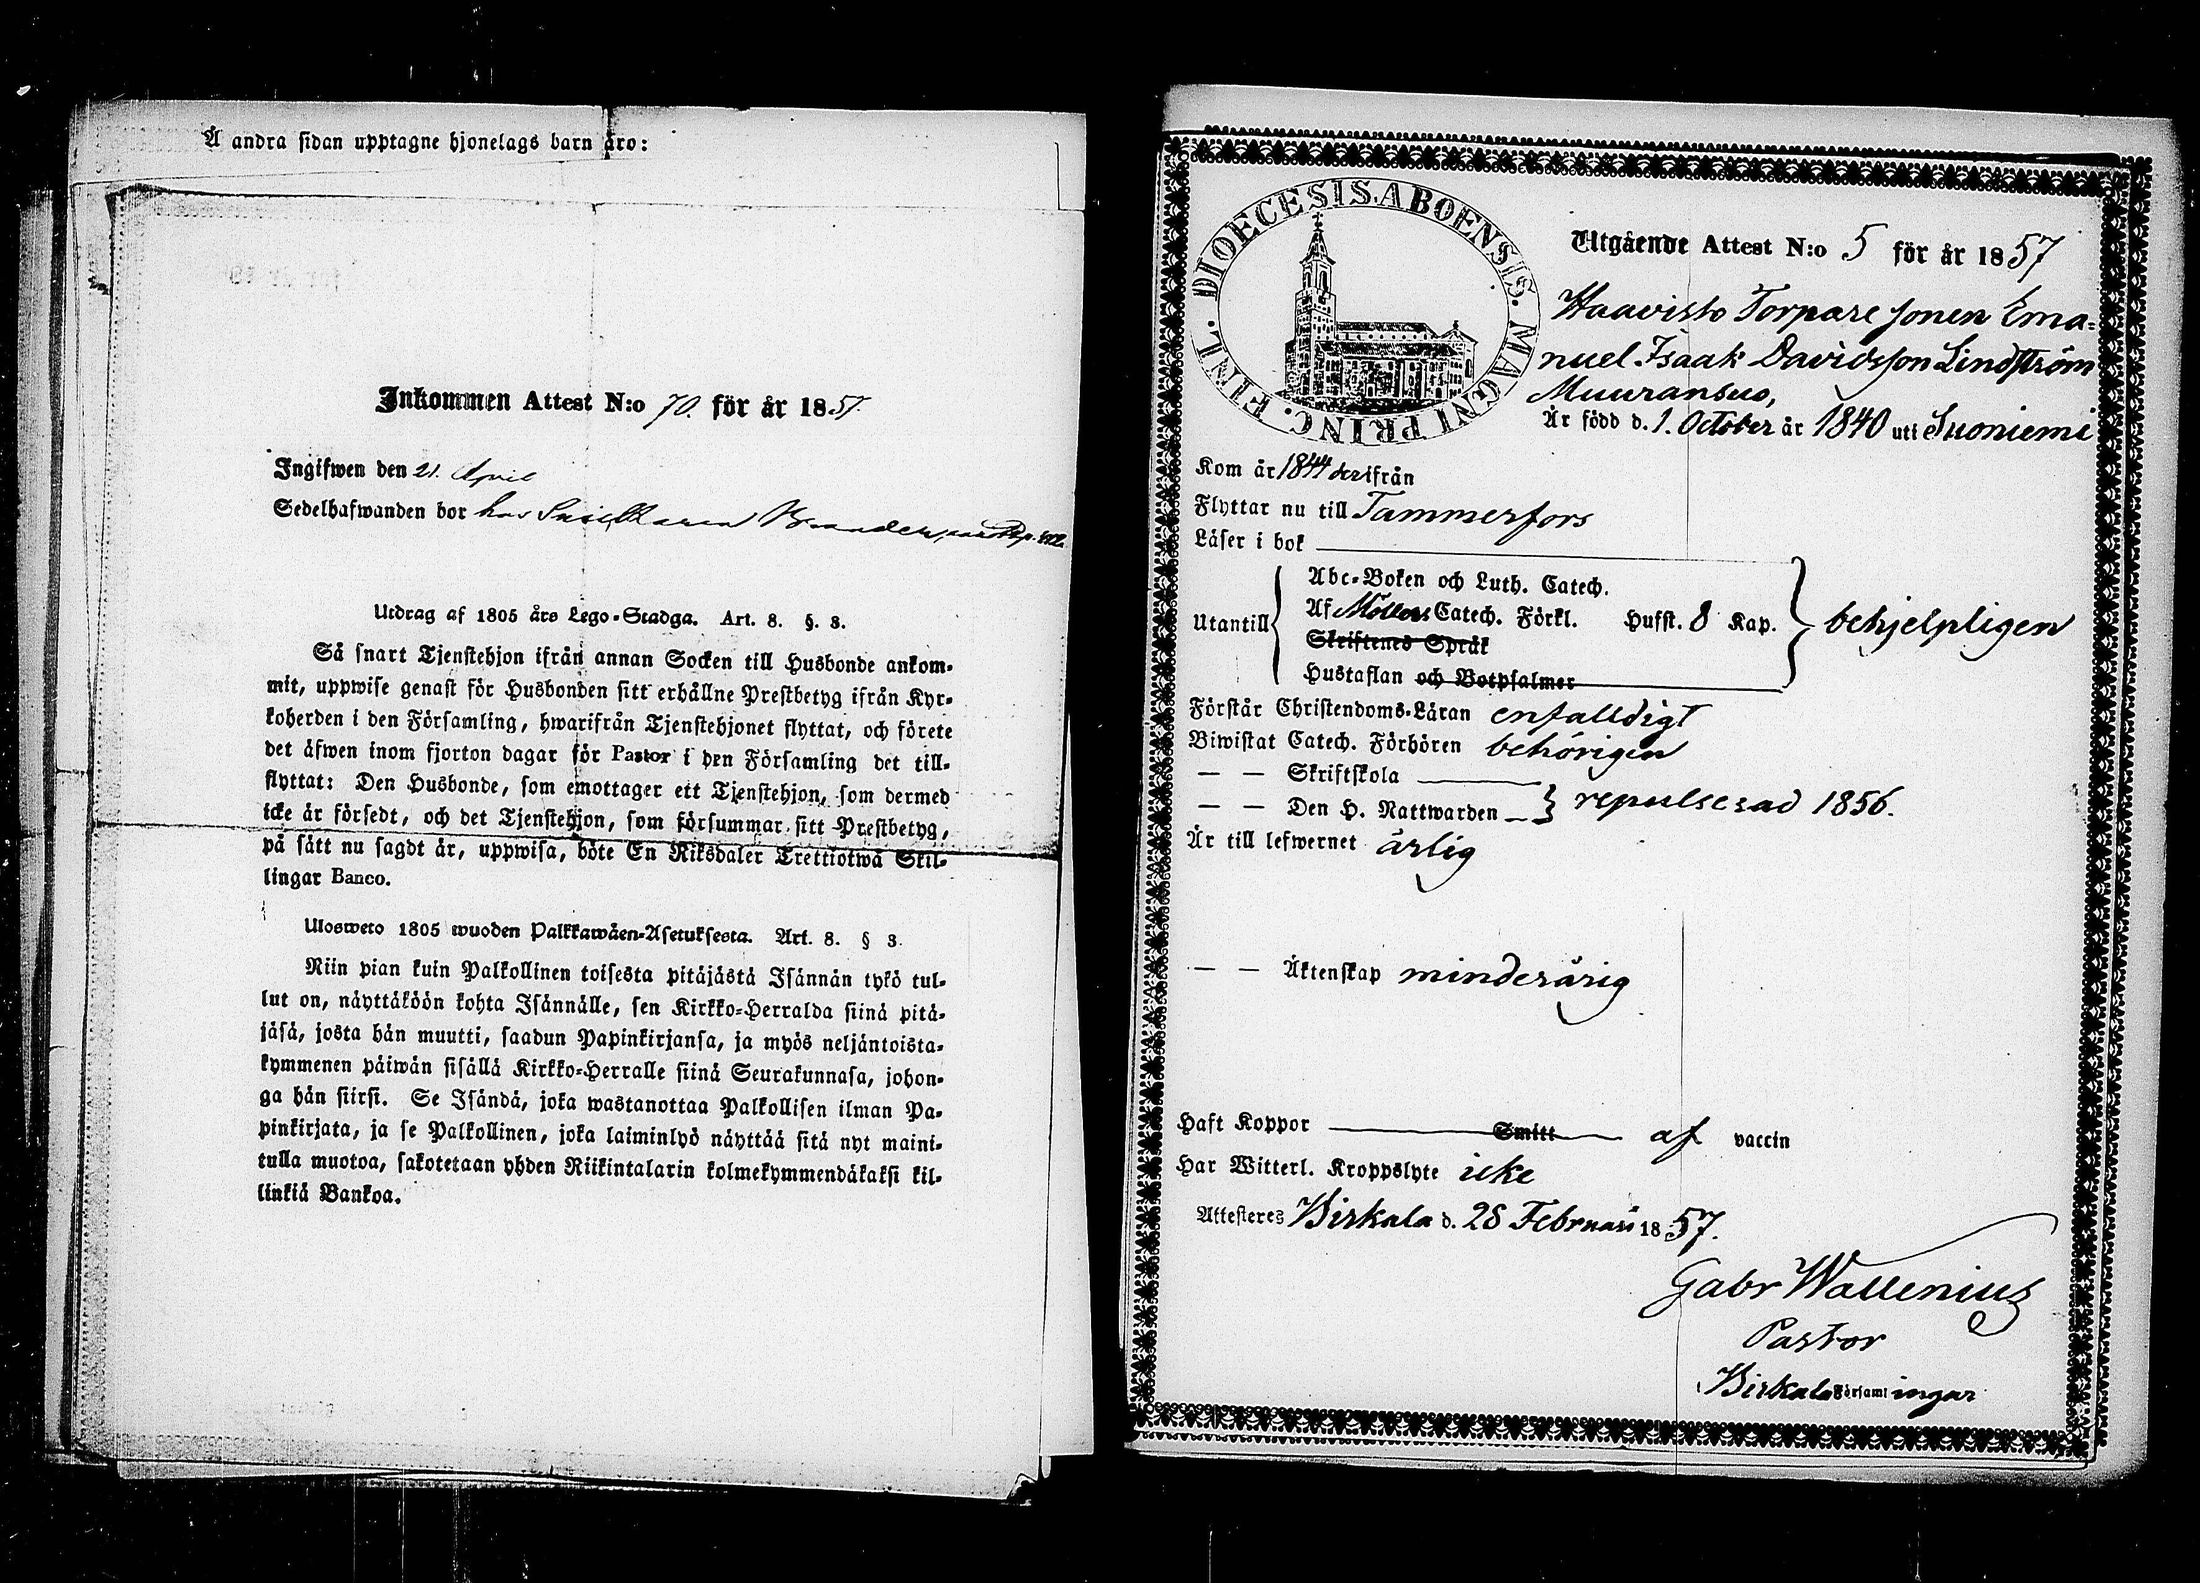 Å andra sidan upptagne hjonelags barn äro:
Inkommen Attest N:o 70. för år 1857.
Ingifwen den 21. April
Sedelhafwanden bor hos
Utdrag af 1805 års Lego-Stadga. Art. 8. §. 3.
Så snart Tjenstehjon ifrån annan Socken till Husbonde ankom-
mit, uppwise genast för Husbonden sitt erhållne Prestbetyg ifrån Kyr-
koherden i den Församling, hwarifrån Tjenstehjonet flyttat, och förete
det äfwen inom fjorton dagar för Pastor i den Församling det till-
flyttat: Den Husbonde, som emottager ett Tjenstehjon, som dermed
icke är försedt, och det Tjenstehjon, som försummar sitt Prestbetyg,
på sätt nu sagdt är, uppwisa, böte En Riksdaler Trettiotwå Skil-
lingar Banco.
Ulosweto 1805 wuoden Palkkawäen-Asetuksesta. Art. 8. § 3.
Niin pian kuin Palkollinen toisesta pitäjästä Isännän tykö tul-
lut on, näyttäköön kohta Isännälle, sen Kirkko-Herralda siinä pitä-
jäsä, josta hän muutti, saadun Papinkirjansa, ja myös neljäntoista-
kymmenen päiwän sisällä Kirkko-Herralle siinä Seurakunnasa, johon-
ga hän siirsi. Se Isändä, joka wastanottaa Palkollisen ilman Pa-
pinkirjata, ja se Palkollinen, joka laiminlyö näyttää sitä nyt maini-
tulla muotoa, sakotetaan yhden Riikintalarin kolmekymmendäkaksi kil-
linkiä Bankoa.
DIOECESIS. ABOENSIS. MAGNI PRINC. FINL.
Utgående Attest N:o 5 för år 1857
Haavisto Torpare sonen Ema-
nuel Isaak Davidsson Lindström
Muuransuo,
Är född d. 1. October år 1840 uti Suoniemi
Kom år 1844 derifrån
Flyttar nu till Tammerfors
Läser i bok
Abc-Boken och Luth. Catech.
Utantill Af Möllers Catech. Förkl. Husst. 8 Kap. behjelpligen
Skriftenes Språk
Hustaflan och Botpsalmer
Förstår Christendoms-Läran enfalldigt
Biwistat Catech. Förhören behörigen
— — Skriftskola
— — Den H. Nattwarden — repulserad 1856.
Är till lefwernet ärlig
— — Äktenskap minderårig
Haft Koppor Smitt af vaccin
Har Witterl. Kroppslyte icke
Attesteres Birkala d. 28 Februari 1857.
Gabr Wallenius
Pastor
Birkala Församlingar